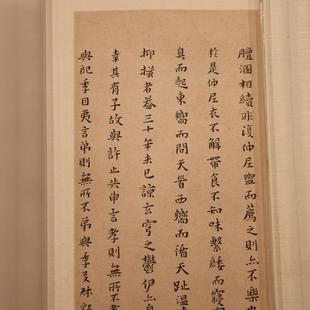 膻涸相續非復仲尼盥而薦之則亦不樂也
於是仲尼衣不解帶食不知味繫縷而寢
臭而起東嚮而問天晉西嚮而循天趾溫
抑摸者暮三十年未已諒玄穹之鬱伊亦自
幸其有子故與許止共申言孝則無所不孝
與紀季目夷言弟則無所不弟與季友